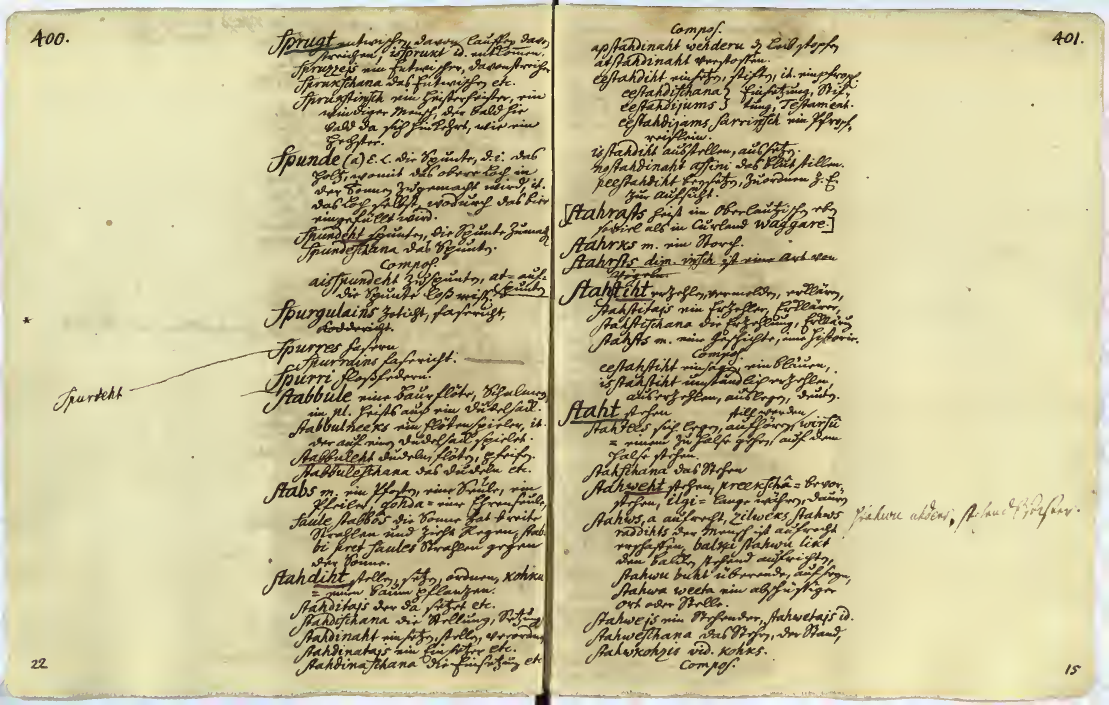 400.
Sprugt entwischen, davon lauffen, davon
streichen, isprukt id. entkommen.
Spruzzejs ein Entwischer, davonstreicher
Sprukschana das Entwischen etc.
Sprukstinsch ein
windiger Mensch, der bald hie
bald da sich hinkehrt, wie ein
Spunde (a) E. L. die Spunte, d. i. das
Holz, womit das obere Loch in
der Tonnen zugemacht wird, it.
das Loch selbst, wodurch das bier
eingefüllt wird.
Spundeht spunten, die Spunte zumach
Spundeschana das Spunten.
Compos.
aisspundeht zuspunten, at= auf=
die Spunte loß spunten
Spurgulains zoticht, fasericht,
koddericht.
Spurres fasern
Spurrains fasericht.
Spurri floßfedern.
Spurdeht
Stabbule eine baur flöte, Schalmey,
in pl. heists auch ein dudelsack.
Stabbulneeks ein flötenspieler, it.
der auf einem dudelsack spielet.
Stabbuleht dudeln, flöten, pfeifen.
Stabbuleschana das dudeln etc.
Stabs m. ein Pfosten, eine Seule, ein
Pfeiler, gohda= eine Ehrenseule,
Saule stabbos die Sonne hat breite
Strahlen und zieht Regen, stab=
bi pret saules Strahlen gegen
der Sonne.
Stahdiht stellen, setzen, ordnen, kohku
= einen baum pflanzen.
Stahditajs der da setzet etc.
Stahdischana die Stellung, Setzung
Stahdinaht einsetzen, stellen, verordnen
Stahdinatajs ein Einsetzer etc.
Stahdinaschana die Einsetzung etc
22
401.
Compos.
apstahdinaht
atstahdinaht verstopfen.
eestahdiht einsetzen, stiften, it. einpfropf.
eestahdischana } Einsetzung, Stif=
eestahdijums } tung, Testament.
eestahdijams sarrinsch ein Pfropf=
reislein.
isstahdiht ausstellen, aussetzen.
nostahdinaht assini das blut stillen.
peestahdiht beysetzen, zuordnen z. E.
zur Aufsicht.
[Stahrasts heist im Oberlautzischen eben
soviel als in Curland Waggare.]
Stahrks m. ein Storch.
Stahrsts dim. insch ist eine Art von
Vögeln.
Stahstiht erzehlen, vermelden, erklären,
Stahstitajs ein Erzehler, Erklärer,
Stahstischana die Erzehlung, Erklärung
Stahsts m. eine Geschichte, eine Historie.
Compos.
eestahstiht einsagen, einbläuen,
isstahstiht umständlich erzehlen,
auserzehlen, auslegen, deuten.
Staht stehen still werden
Stahtees sich legen, aufhören, wirsu
= einem zu halse gehen, auf dem
halse stehen.
Stahschana das Stehen
Stahweht stehen, preekschâ= bevor=
stehen, ilgi= lange währen, dauren
Stahws, a aufrecht, zilweks stahws
raddihts der Mensch ist aufrecht
erschaffen, balki stahwu likt
den balken stehend aufrichten,
stahwu buht überende, auf seyn,
Stahwa weeta ein abschüßiger
ort oder Stelle.
Stahwu uhdens, stehend Wasser.
Stahwejs ein Stehender, Stahwetajs id.
Stahweschana das Stehen, der Stand,
Stahwkohzis vid. kohks.
Compos.
15